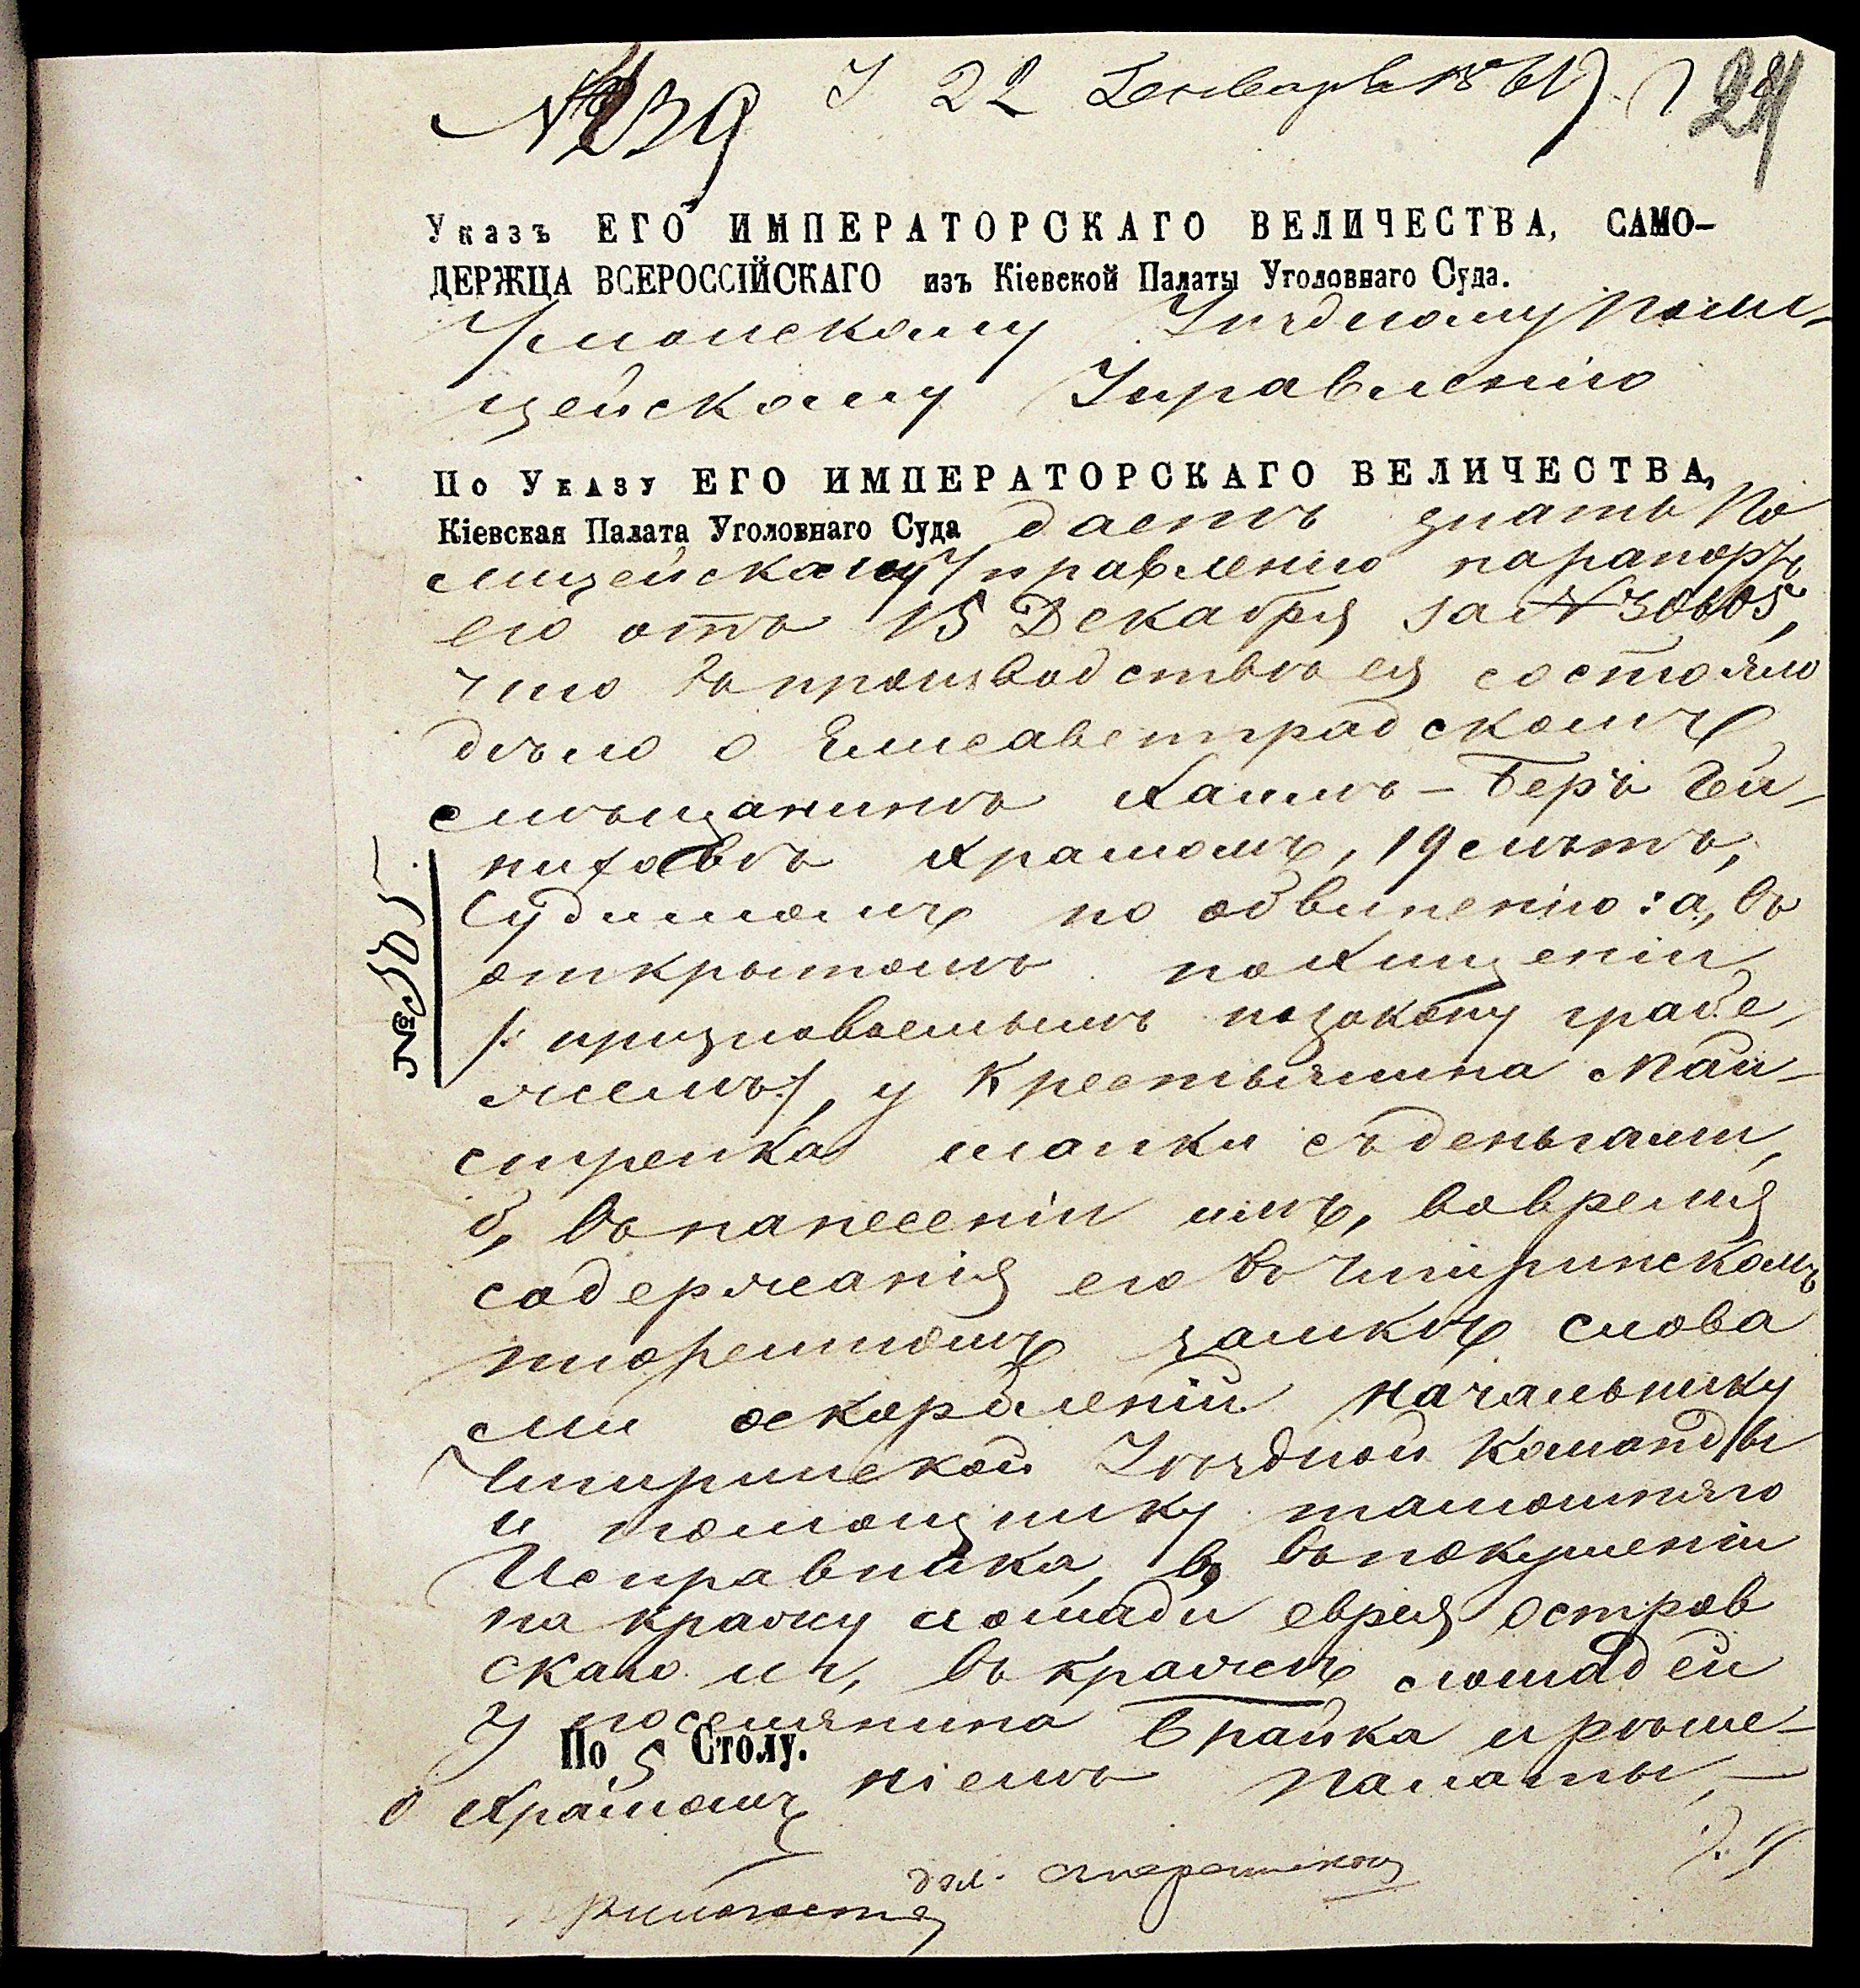 № 239 22 Января 24
Указъ ЕГО ИМПЕРАТОРСКАГО ВЕЛИЧЕСТВА, САМО-
ДЕРЖЦА ВСЕРОССІЙСКАГО изъ Кіевской Палаты Уголовнаго Суда.
Уманскому Уѣздному Поли-
цейскому Управленію
По Указу ЕГО ИМПЕРАТОРСКАГО ВЕЛИЧЕСТВА,
Кіевская Палата Уголовнаго Суда даетъ знать По
лицейскому Управленію на рапортъ
его отъ 15 Декабря за №
что въ производствѣ ея состояло
дѣло о Елисаветградскомъ
мѣщанинѣ Хаимъ-Беръ
Храмомъ, 19 лѣтъ,
Судимомъ по обвиненію: а, въ
открытомъ похищеніи
/: признаваемымъ по закону грабе-
жемъ:/, у Крестьянина Май-
стренка шапки съ деньгами,
б, въ нанесеніи имъ, во время
содержанія его въ Чигиринскомъ
тюремномъ замкѣ слова
ми оскорбленій начальнику
Чигиринской Уѣздной Команды
и помощнику тамошняго
Исправника, в, въ покушеніи
на кражу лошади еврея Остров
скаго и г, въ кражѣ лошадей
у поселянина Брайка и рѣше-
По 5 Столу.
о Храмомъ ніемъ Палаты,